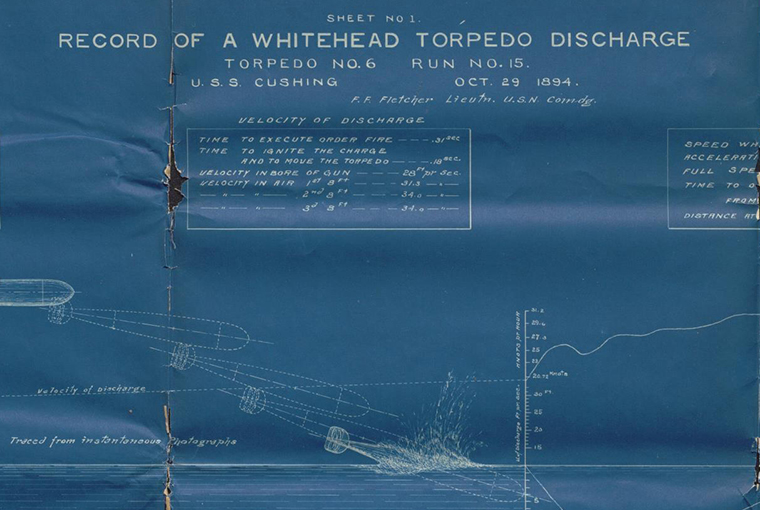 SHEET NO 1.
RECORD OF A WHITEHEAD TORPEDO DISCHARGE
TORPEDO NO. 6 RUN NO. 15.
U.S.S. CUSHING OCT. 29 1894.
F.F. Fletcher Lieutn. U.S.N. Comdg.
VELOCITY OF DISCHARGE
TIME TO EXECUTE ORDER FIRE .31 sec
TIME TO IGNITE THE CHARGE
AND TO MOVE THE TORPEDO .18 sec
VELOCITY IN BORE OF GUN 28 ft pr sec.
VELOCITY IN AIR 1st 8 Ft 31.3 — " —
— " — " — 2nd 8 Ft 34.0 — " —
— " — " — 3d 8 Ft 34.0 — " —
SPEED WH
ACCELERATI
FULL SPE
TIME TO
FROM
DISTANCE AT
Knots pr hour
25
20.72 Knots
30 Ft.
25
20
15
5
Velocity of Discharge
Traced from instantaneous Photographs